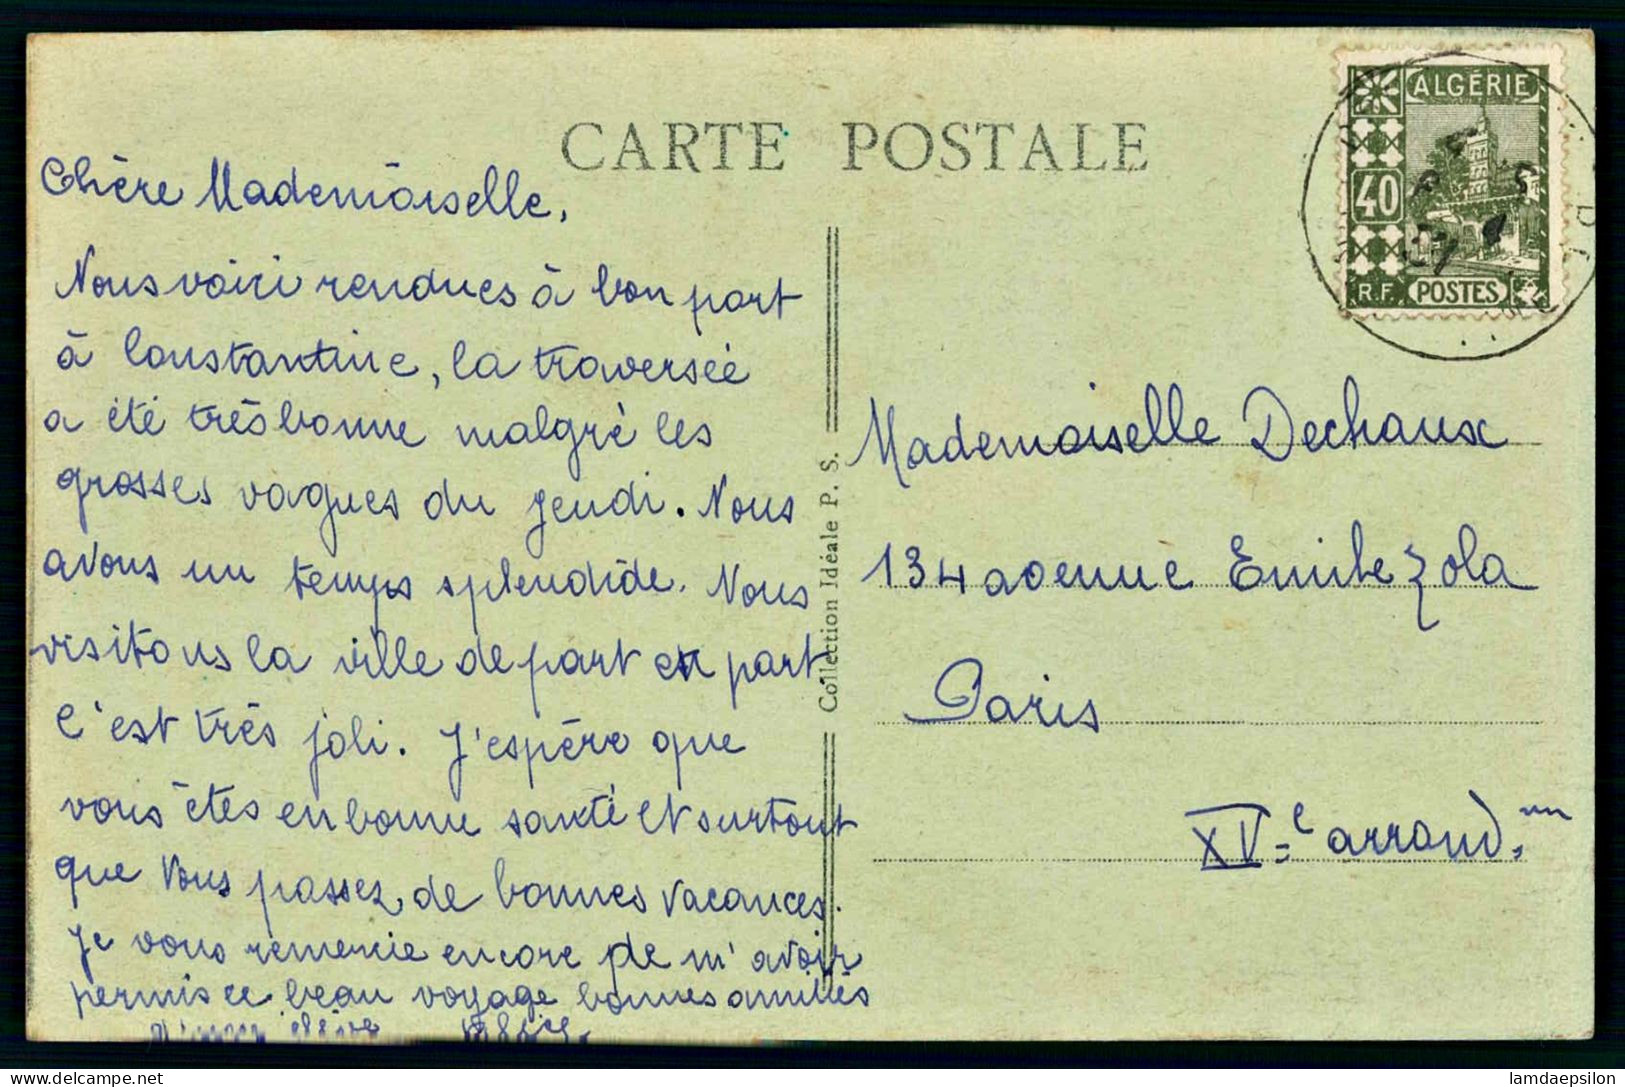 CARTE POSTALE
Chère Mademoiselle,
Nous voici rendues à bon port
à Constantine, la traversée
a été très bonne malgré les
grosses vagues du jeudi. Nous
avons un temps splendide. Nous
visitons la ville de part en part
c'est très joli. J'espère que
vous êtes en bonne santé et surtout
que vous passez de bonnes vacances.
Je vous remercie encore de m'avoir
permis ce beau voyage bonnes amitiés
Collection Idéale P. S.
ALGÉRIE
40
R.F. POSTES
Mademoiselle Dechaux
134 avenue Emile Zola
Paris
XVe arrond.
delcampe.net
lamdaepsilon